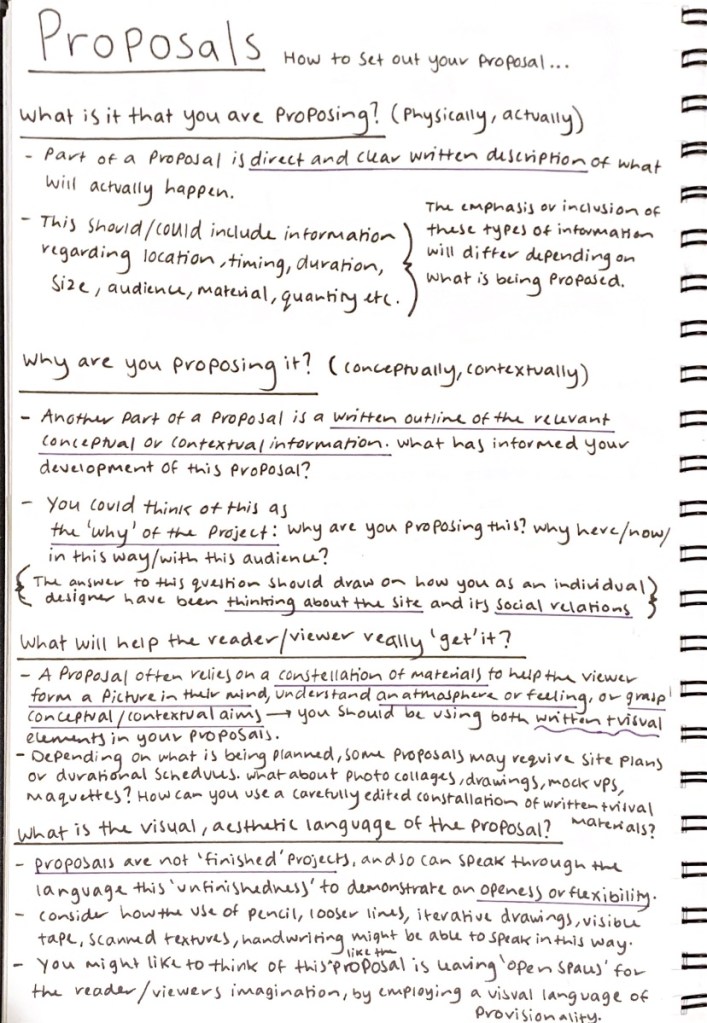 Proposals How to set out your proposal...
What is it that you are proposing? (physically, actually)
- Part of a proposal is direct and clear written description of what
will actually happen.
- This should/could include information
regarding location, timing, duration,
size, audience, material, quantity etc.
The emphasis or inclusion of
these types of information
will differ depending on
what is being proposed.
Why are you proposing it? (conceptually, contextually)
- Another part of a proposal is a written outline of the relevant
conceptual or contextual information. What has informed your
development of this proposal?
- You could think of this as
the 'why' of the project: why are you proposing this? why here/now/
in this way/with this audience?
{The answer to this question should draw on how you as an individual
designer have been thinking about the site and its social relations}
What will help the reader/viewer really 'get' it?
- A proposal often relies on a constellation of materials to help the viewer
form a picture in their mind, understand an atmosphere or feeling, or grasp
conceptual/contextual aims → you should be using both written + visual
elements in your proposals.
- Depending on what is being planned, some proposals may require site plans
or durational schedules. What about photo collages, drawings, mock ups,
maquettes? How can you use a carefully edited constallation of written + visual
materials?
What is the visual, aesthetic language of the proposal?
- proposals are not 'finished' projects, and so can speak through the
language this 'unfinishedness' to demonstrate an openess or flexibility.
- consider how the use of pencil, looser lines, iterative drawings, visible
tape, scanned textures, handwriting might be able to speak in this way.
- You might like to think of this like the proposal is leaving 'open spaces' for
the reader/viewers imagination, by employing a visual language of
provisionality.